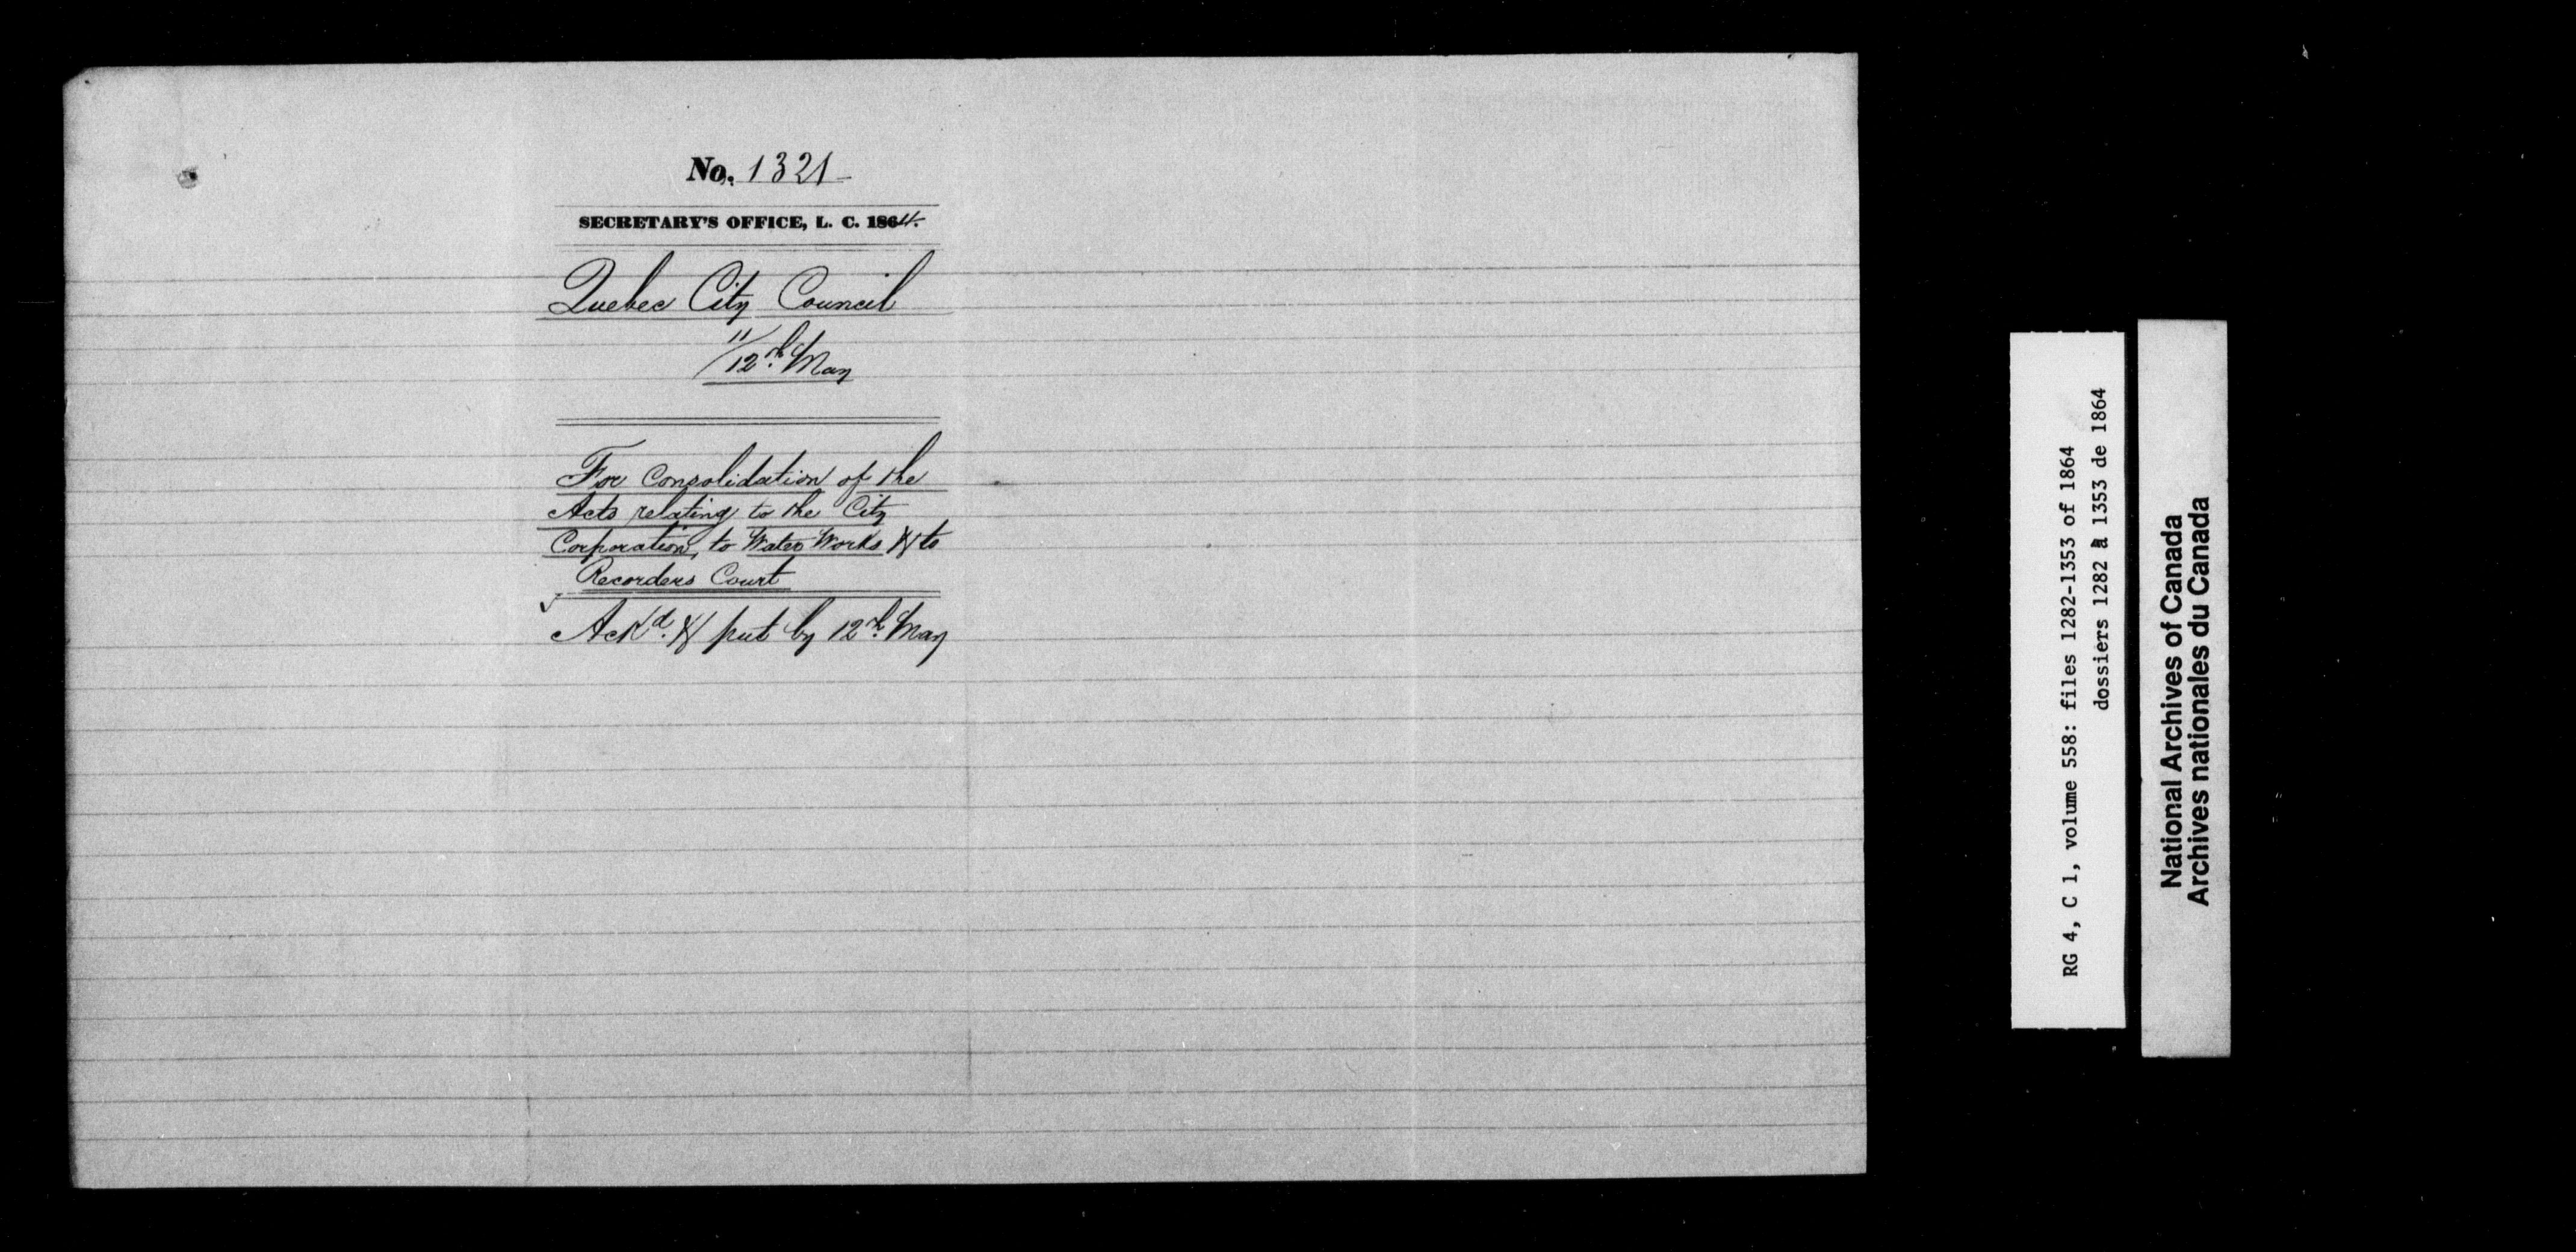 No. 1321
SECRETARY'S OFFICE, L. C. 1864.
Quebec City Council
11/12th May
For Consolidation of the
Acts relating to the City
Corporation, to Water Works & to
Recorders Court
Ackd. & put by 12th May
RG 4, C 1, volume 558: files 1282-1353 of 1864
dossiers 1282 à 1353 de 1864
National Archives of Canada
Archives nationales du Canada